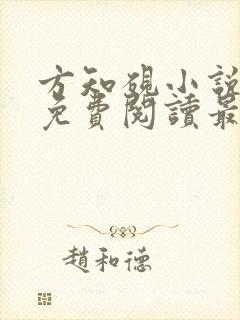 方知硯小說
免費閱讀最
趙和德